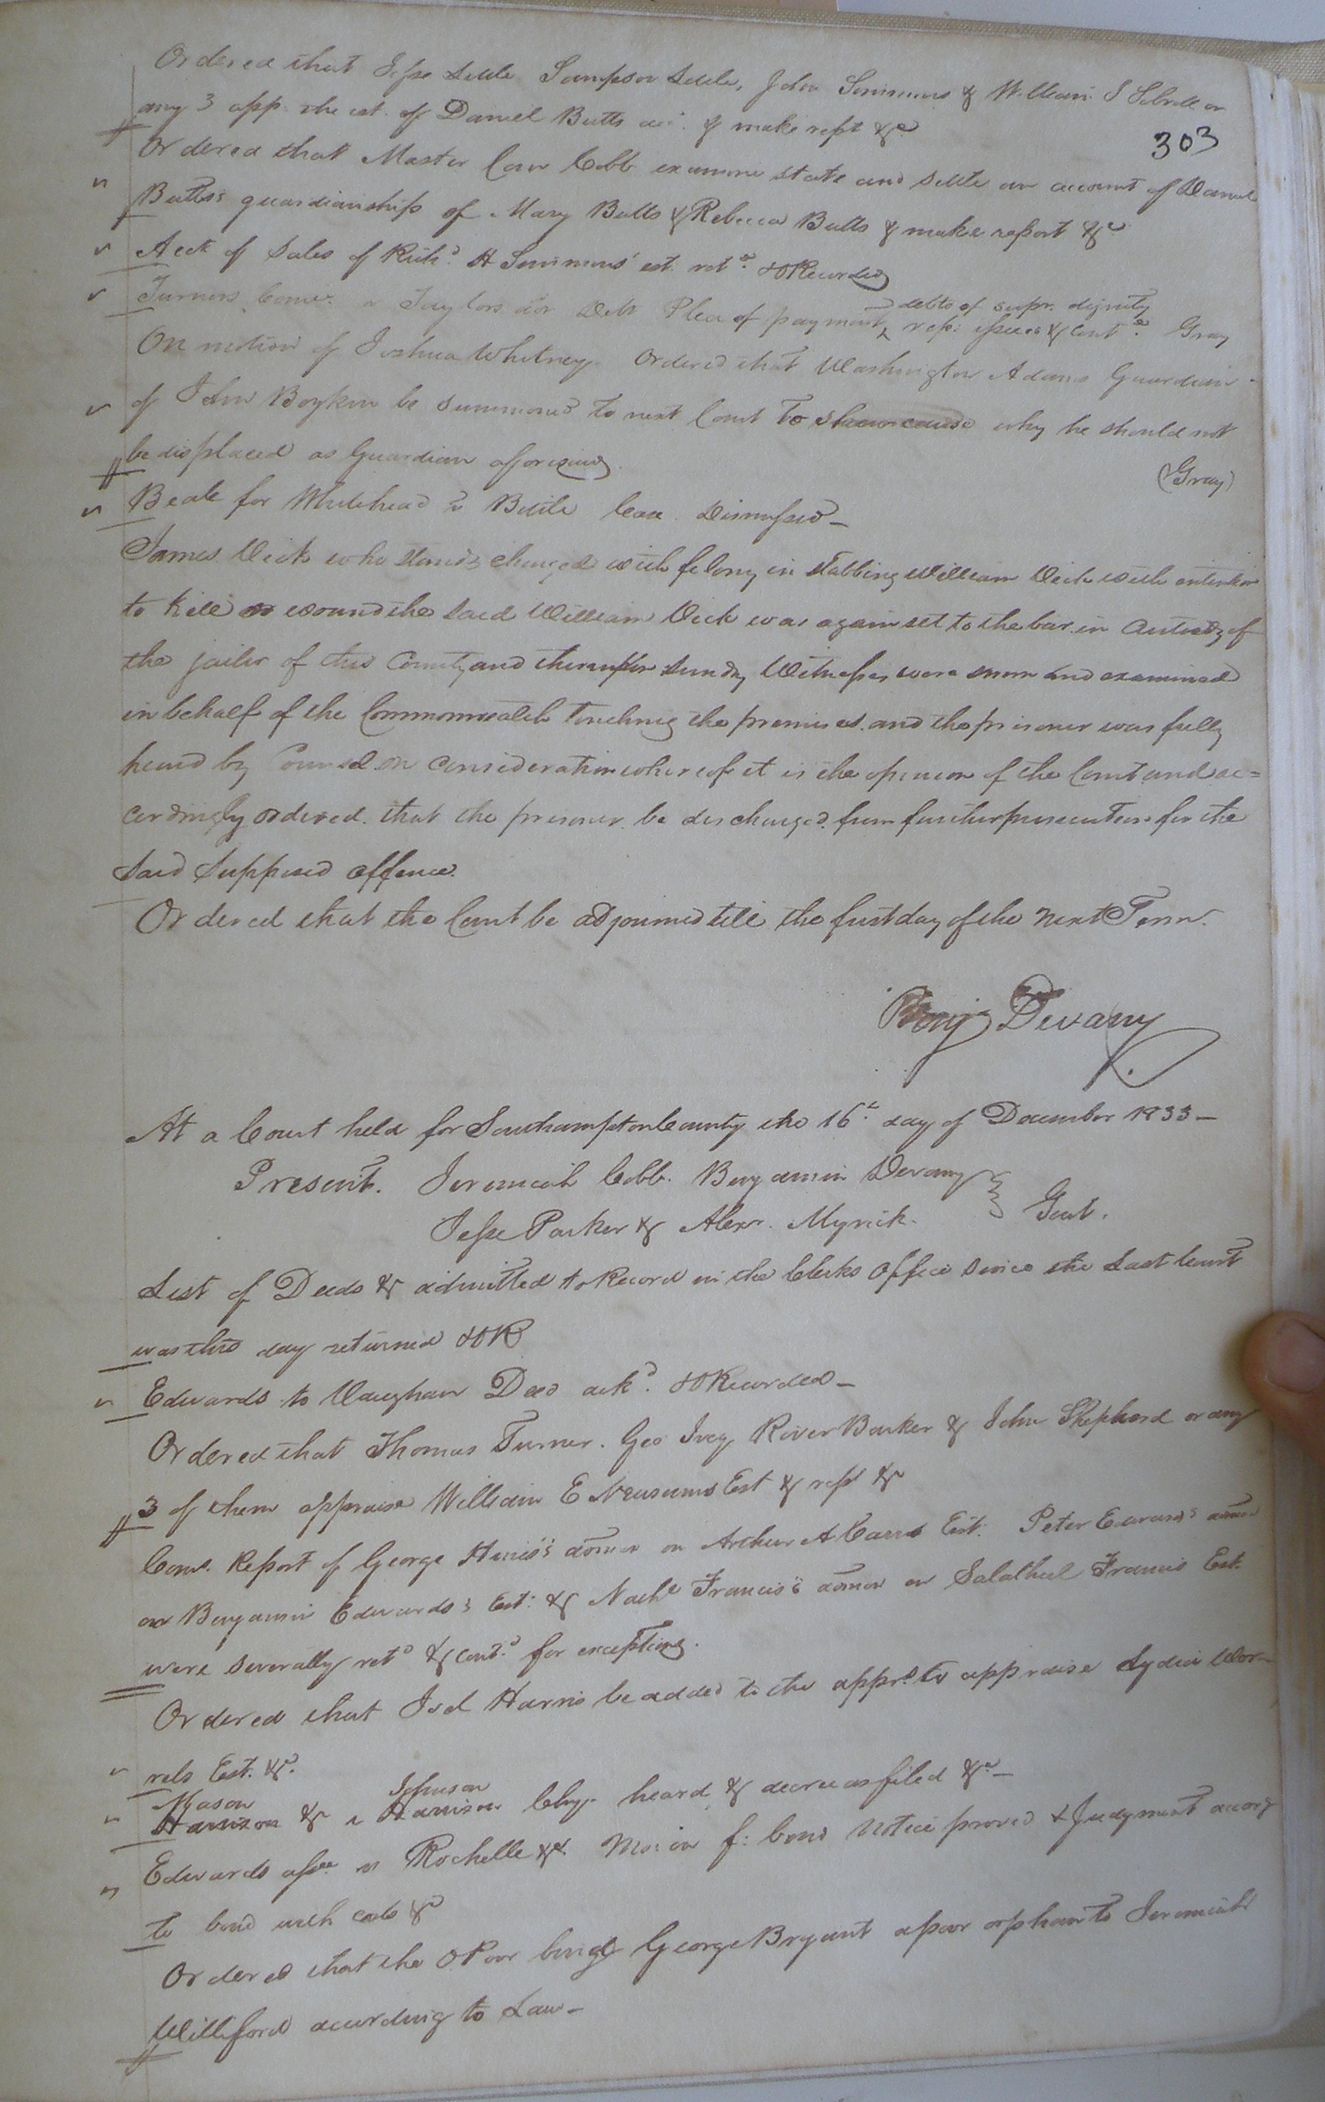 Ordered that Jesse Little Sampson Little, John Simmons & William J Sebrell or
any 3 app. the est. of Daniel Butts dec. & make rept &c
303
Ordered that Master Com Cobb examine state and settle an account of Daniel
Butts's guardianship of Mary Butts & Rebecca Butts & make report &c
Acct of Sales of Richd. H Simmons' est. retd. & ORecorded
Turners Comr. v Taylors Exr Debt Plea of payment, debts of supr. dignity
rep: issues & Contd. Gray
On motion of Joshua Whitney Ordered that Washington Adams Guardian
of John Boykin be summoned to next Court to shew cause why he should not
be displaced as Guardian aforesaid.
(Gray)
Beale for Whitehead v Battle Case Dismissed
James Vick who stands charged with felony in stabbing William Vick with intention
to kill or wound the said William Vick was again set to the bar in Custody of
the jailor of this County and thereupon Sundry Witnesses were sworn and examined
in behalf of the Commonwealth touching the premises and the prisoner was fully
heard by Counsel on consideration whereof it is the opinion of the Court and ac=
cordingly ordered that the prisoner be discharged from further prosecution for the
said supposed offence.
Ordered that the Court be adjourned till the first day of the next Term.
Benj Devany
At a Court held for Southampton County the 16th. day of December 1833
Present. Jeremiah Cobb. Benjamin Devany
Jesse Parker & Alexr. Myrick. Gent.
List of Deeds & admitted to Record in the Clerks Office since the Last Court
was this day returned & OR
Edwards to Vaughan Deed ackd. & ORecorded
Ordered that Thomas Turner. Geo Ivey River Barker & John Shepherd or any
3 of them appraise William E Newsums Est & rept &c
Comr. Report of George admor on Arthur A Carrs Est. Peter Edwards admor
on Benjamin Edwards's Est: & Nathl Francis's admor on Salathiel Francis Est.
were severally retd & contd. for exceptions.
Ordered that Joel Harris be added to the apprs. to appraise Lydia Wor-
rels Est. &c.
Mason Johnson
Harrison & v Harrison Chy. heard & decree as filed &c
Edwards assee v Rochelle &c. Mo: on f: bond Notice proved & Judgment accorg
to bond with costs &c
Ordered that the OPoor bind George Bryant a poor orphan to Jeremiah
Williford according to Law